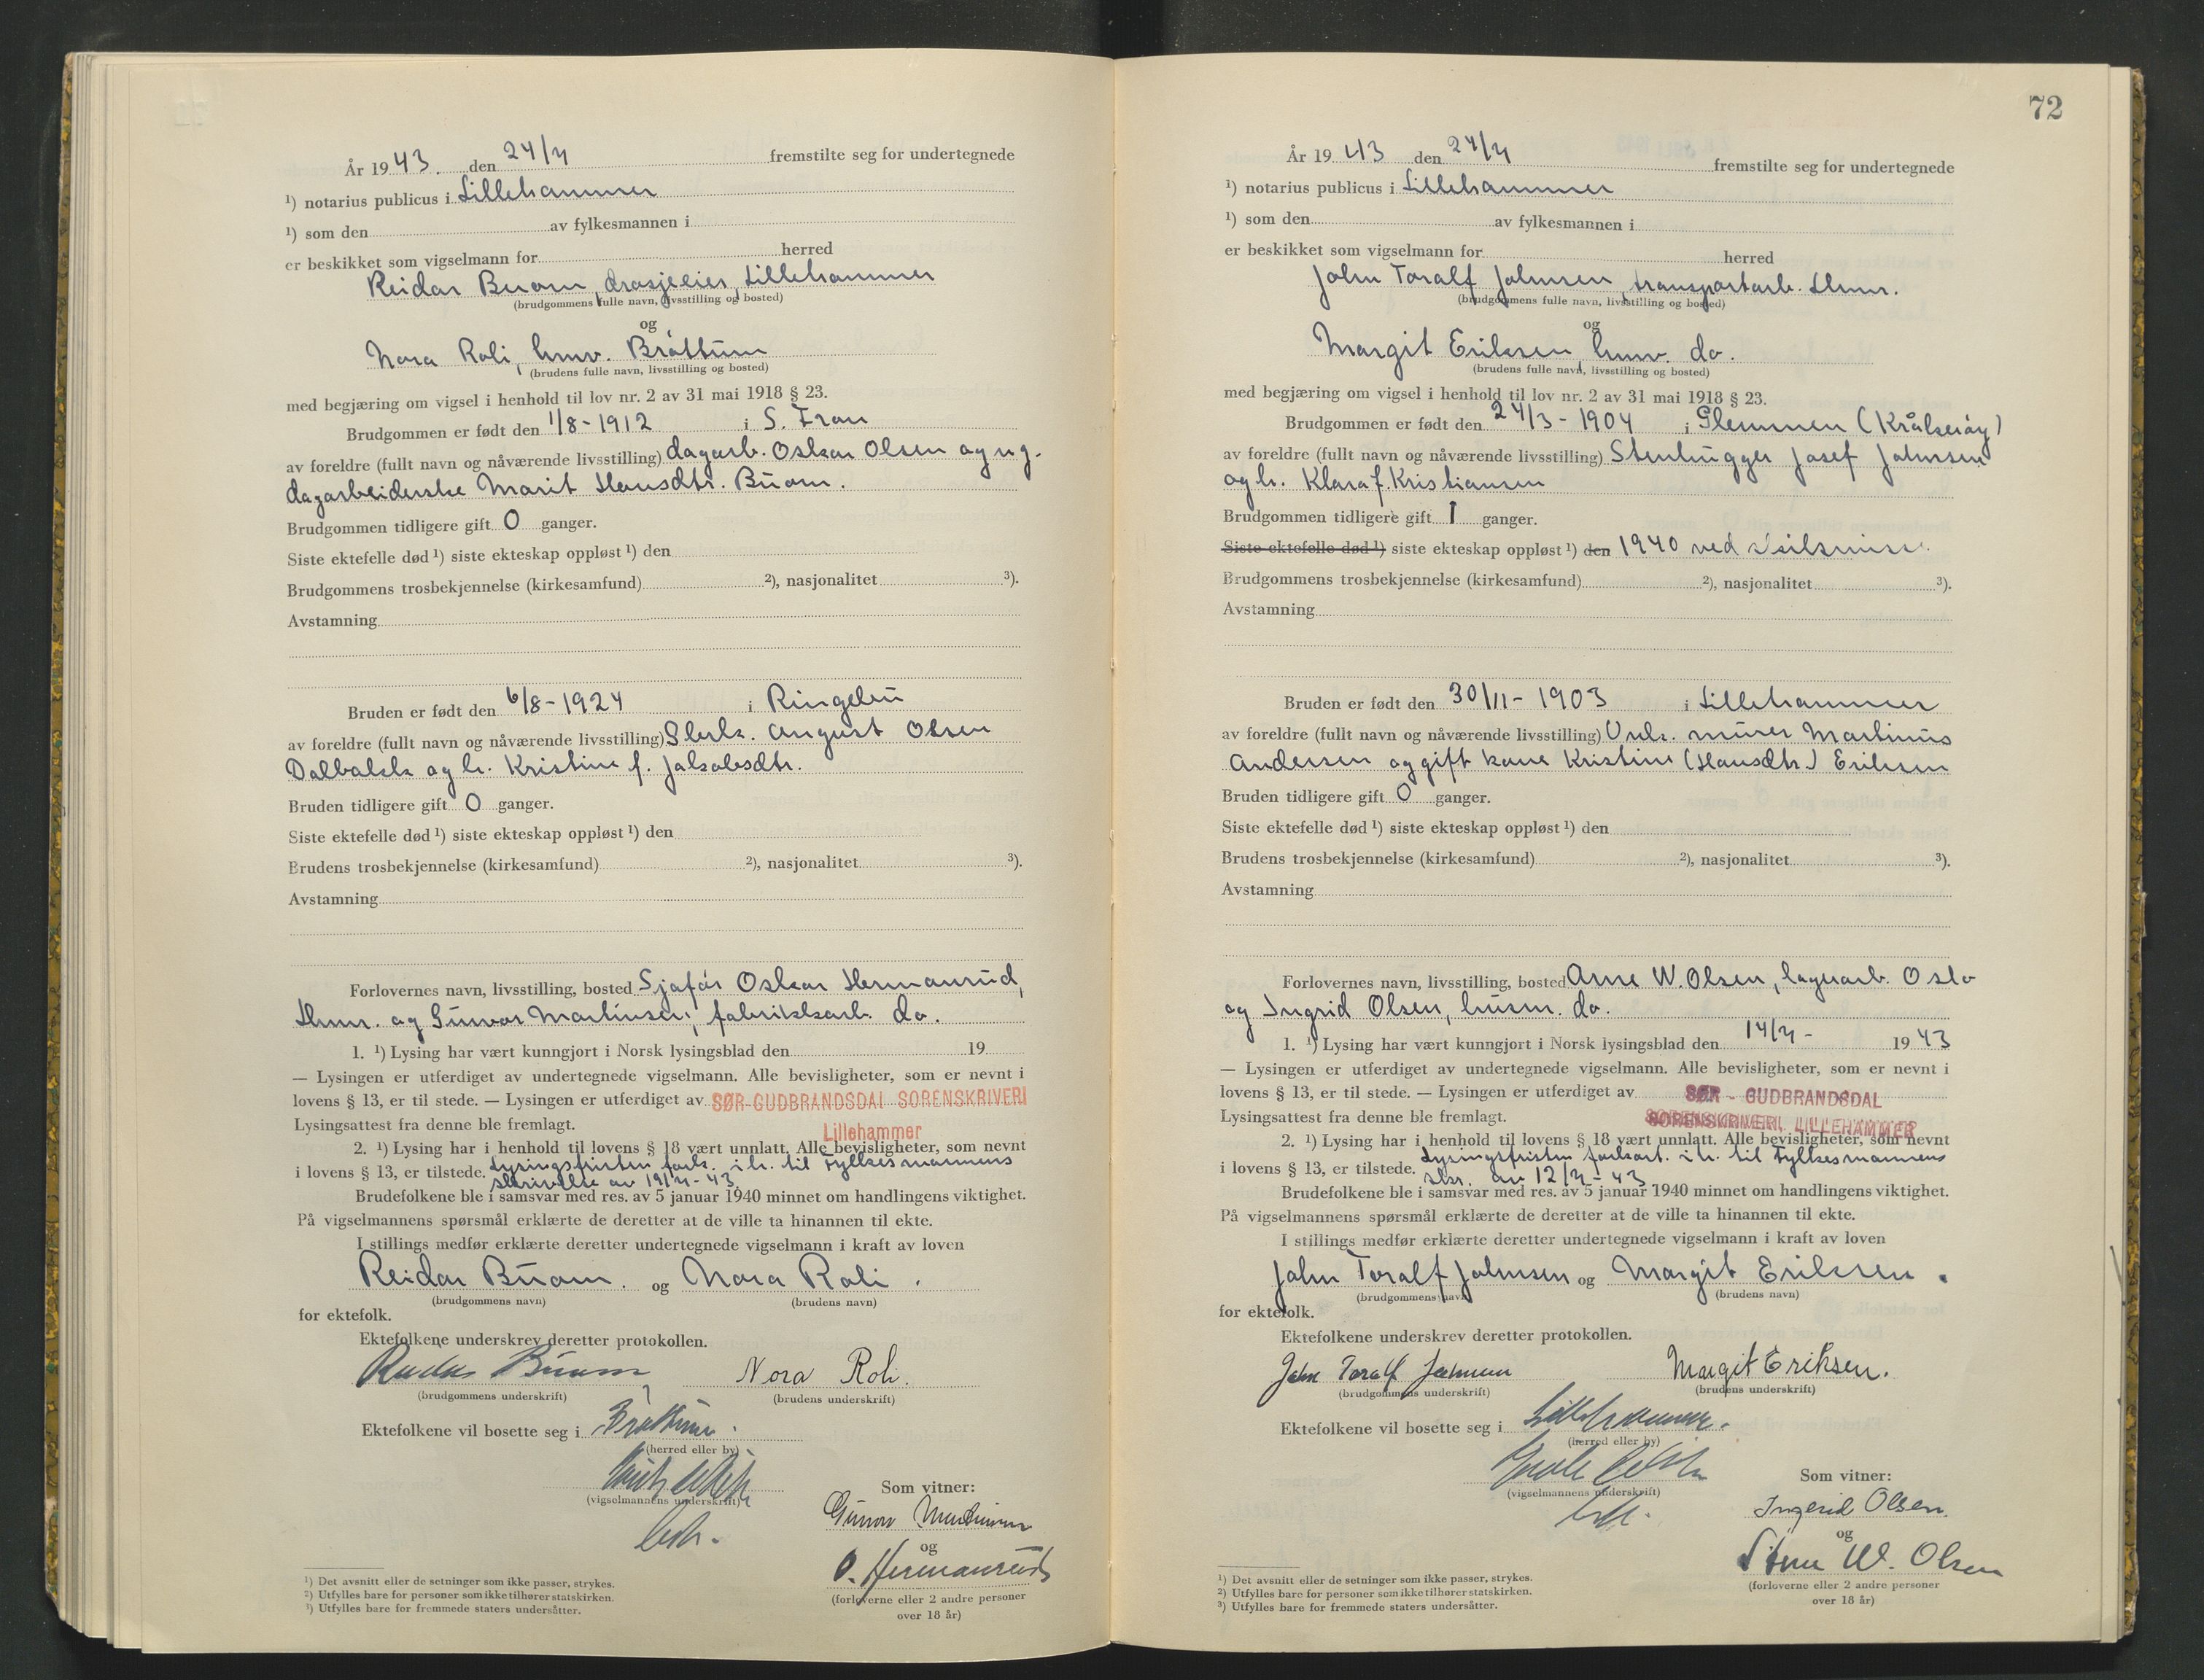 År 19 43. den 24/4 fremstilte seg for undertegnede
¹) notarius publicus i Lillehammer
¹) som den av fylkesmannen i
er beskikket som vigselmann for herred
Reidar Buom, drosjeeier, Lillehammer
(brudgommens fulle navn, livsstilling og bosted)
og
Nora Roli, hmv. Brøttum
(brudens fulle navn, livsstilling og bosted)
med begjæring om vigsel i henhold til lov nr. 2 av 31 mai 1918 § 23.
Brudgommen er født den 1/8-1912 i S. Fron
av foreldre (fullt navn og nåværende livsstilling) dagarb. Oskar Olsen og ug.
dagarbeiderske Marit Hansdtr. Buom.
Brudgommen tidligere gift 0 ganger.
Siste ektefelle død ¹) siste ekteskap oppløst ¹) den
Brudgommens trosbekjennelse (kirkesamfund) ²), nasjonalitet ³).
Avstamning
Bruden er født den 6/8-1924 i Ringebu
av foreldre (fullt navn og nåværende livsstilling) August Olsen
Dalbakk og h. Kristine f. Jakobsdtr.
Bruden tidligere gift 0 ganger.
Siste ektefelle død ¹) siste ekteskap oppløst ¹) den
Brudens trosbekjennelse (kirkesamfund) ²), nasjonalitet ³).
Avstamning
Forlovernes navn, livsstilling, bosted Sjafør Oskar Hermanrud,
Lhmr. og Gunvor Martinsen, fabrikkarb. do.
1. ¹) Lysing har vært kunngjort i Norsk lysingsblad den 19
— Lysingen er utferdiget av undertegnede vigselmann. Alle bevisligheter, som er nevnt i
lovens § 13, er til stede. — Lysingen er utferdiget av SØR-GUDBRANDSDAL SORENSKRIVERI
Lysingsattest fra denne ble fremlagt. Lillehammer
2. ¹) Lysing har i henhold til lovens § 18 vært unnlatt. Alle bevisligheter, som nevnt
i lovens § 13, er tilstede. Lysingsfristen fork. i h. til Fylkesmannens
skrivelse av 19/4-43.
Brudefolkene ble i samsvar med res. av 5 januar 1940 minnet om handlingens viktighet.
På vigselmannens spørsmål erklærte de deretter at de ville ta hinannen til ekte.
I stillings medfør erklærte deretter undertegnede vigselmann i kraft av loven
Reidar Buom. og Nora Roli.
(brudgommens navn) (brudens navn)
for ektefolk.
Ektefolkene underskrev deretter protokollen.
Reidar Buom Nora Roli.
(brudgommens underskrift) (brudens underskrift)
Ektefolkene vil bosette seg i Brøttum.
(herred eller by)
(vigselmannens underskrift)
Som vitner:
Gunvor Martinsen
og
O. Hermanrud
(forloverne eller 2 andre personer
over 18 år)
¹) Det avsnitt eller de setninger som ikke passer, strykes.
²) Utfylles bare for personer som ikke tilhører statskirken.
³) Utfylles bare for fremmede staters undersåtter.
72
År 19 43 den 24/4 fremstilte seg for undertegnede
¹) notarius publicus i Lillehammer
¹) som den av fylkesmannen i
er beskikket som vigselmann for herred
John Toralf Johnsen, transportarb. Lhmr.
(brudgommens fulle navn, livsstilling og bosted)
og
Margit Eriksen, hmv. do.
(brudens fulle navn, livsstilling og bosted)
med begjæring om vigsel i henhold til lov nr. 2 av 31 mai 1918 § 23.
Brudgommen er født den 24/3-1904 i Glemmen (Kråkerøy)
av foreldre (fullt navn og nåværende livsstilling) Stenhugger Josef Johnsen
og h. Klara f. Kristiansen
Brudgommen tidligere gift 1 ganger.
Siste ektefelle død ¹) siste ekteskap oppløst ¹) den 1940 ved skilsmisse.
Brudgommens trosbekjennelse (kirkesamfund) ²), nasjonalitet ³).
Avstamning
Bruden er født den 30/11-1903 i Lillehammer
av foreldre (fullt navn og nåværende livsstilling) Unk. murer Martinius
Andersen og gift kone Kristine (Hansdtr.) Eriksen
Bruden tidligere gift 0 ganger.
Siste ektefelle død ¹) siste ekteskap oppløst ¹) den
Brudens trosbekjennelse (kirkesamfund) ²), nasjonalitet ³).
Avstamning
Forlovernes navn, livsstilling, bosted Arne W. Olsen, lagerarb. Oslo
og Ingrid Olsen, husm. do.
1. ¹) Lysing har vært kunngjort i Norsk lysingsblad den 14/4- 19 43
— Lysingen er utferdiget av undertegnede vigselmann. Alle bevisligheter, som er nevnt i
lovens § 13, er til stede. — Lysingen er utferdiget av SØR - GUDBRANDSDAL
Lysingsattest fra denne ble fremlagt. SORENSKRIVERI, LILLEHAMMER
2. ¹) Lysing har i henhold til lovens § 18 vært unnlatt. Alle bevisligheter, som nevnt
i lovens § 13, er tilstede. Lysingsfristen forkort. i h. til Fylkesmannens
skr. av 12/4-43
Brudefolkene ble i samsvar med res. av 5 januar 1940 minnet om handlingens viktighet.
På vigselmannens spørsmål erklærte de deretter at de ville ta hinannen til ekte.
I stillings medfør erklærte deretter undertegnede vigselmann i kraft av loven
John Toralf Johnsen og Margit Eriksen.
(brudgommens navn) (brudens navn)
for ektefolk.
Ektefolkene underskrev deretter protokollen.
John Toralf Johnsen Margit Eriksen.
(brudgommens underskrift) (brudens underskrift)
Ektefolkene vil bosette seg i Lillehammer.
(herred eller by)
(vigselmannens underskrift)
Som vitner:
Ingerid Olsen.
og
Arne W. Olsen
(forloverne eller 2 andre personer
over 18 år)
¹) Det avsnitt eller de setninger som ikke passer, strykes.
²) Utfylles bare for personer som ikke tilhører statskirken.
³) Utfylles bare for fremmede staters undersåtter.